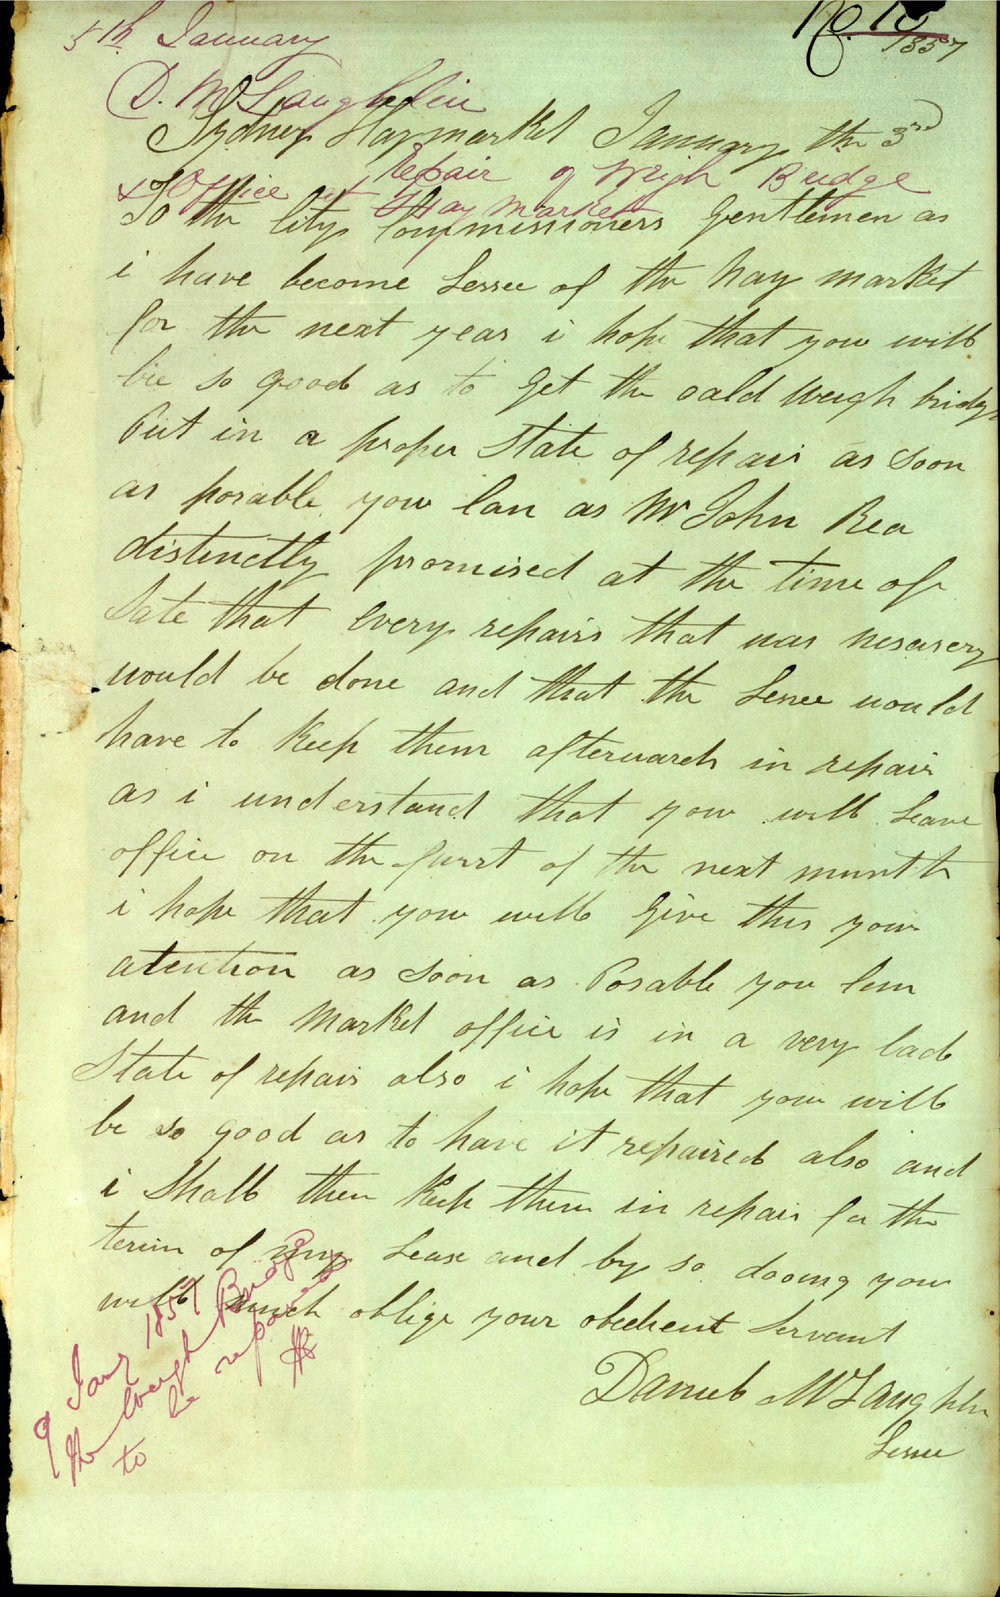 No. 10
1857
5th January
D. McLaughlin
Sydney Haymarket January the 3rd
Repair of Weigh Bridge
& Office at Hay Market
To the City Commissioners Gentlemen as
i have become Lessee of the hay market
for the next year i hope that you will
be so good as to get the oald weigh bridge
Put in a proper State of repair as soon
as posable you Can as Mr John Rea
distinctly promised at the time of
Sale that every repairs that was nesesery
would be done and that the Lesee would
have to Keep them afterwards in repair
as i understand that you will Leave
office on the furst of the next munth
i hope that you will Give this your
atention as soon as Posable you Can
and the Market office is in a very bad
State of repair also i hope that you will
be so good as to have it repaired also and
i Shall then Keep them in repair for the
term of my Lease and by so dooing you
will much oblige your obedient Servant
Daniel McLaughlin
Lesee
9 Jany 1857
The Weigh Bridge
to be repaired